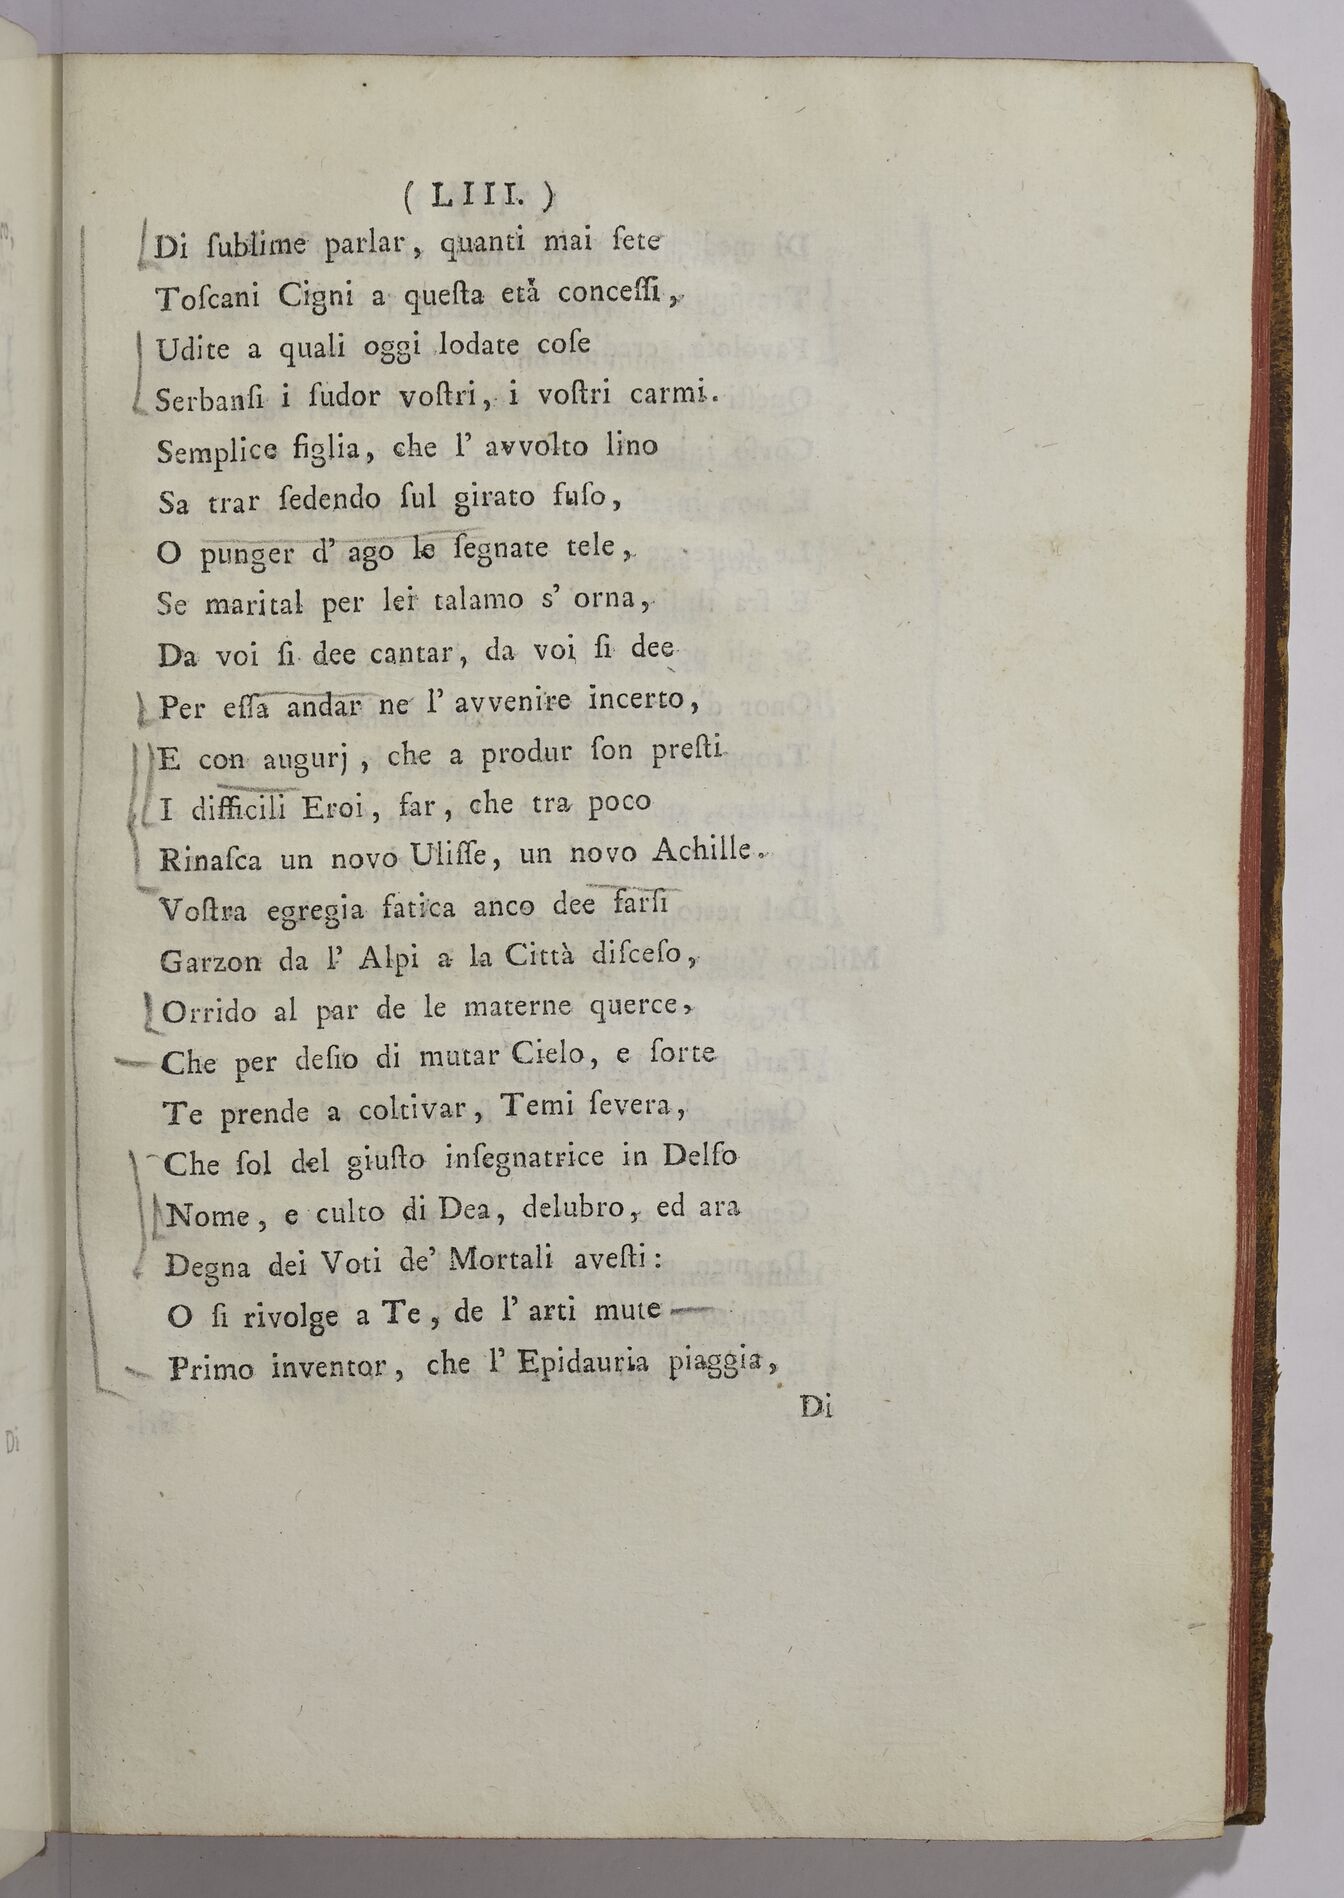 ( LIII. )
Di ſublime parlar, quanti mai ſete
Toſcani Cigni a queſta età conceſſi,
Udite a quali oggi lodate coſe
Serbanſi i ſudor voſtri, i voſtri carmi.
Semplice figlia, che l' avvolto lino
Sa trar ſedendo ſul girato fuſo,
O punger d' ago le ſegnate tele,
Se marital per lei talamo s' orna,
Da voi ſi dee cantar, da voi ſi dee
Per eſſa andar ne l' avvenire incerto,
E con augurj, che a produr ſon preſti
I difficili Eroi, far, che tra poco
Rinaſca un novo Uliſſe, un novo Achille.
Voſtra egregia fatica anco dee farſi
Garzon da l' Alpi a la Città diſceſo,
Orrido al par de le materne querce,
Che per deſio di mutar Cielo, e ſorte
Te prende a coltivar, Temi ſevera,
Che ſol del giuſto inſegnatrice in Delfo
Nome, e culto di Dea, delubro, ed ara
Degna dei Voti de' Mortali aveſti:
O ſi rivolge a Te, de l' arti mute
Primo inventor, che l' Epidauria piaggia,
Di
Di